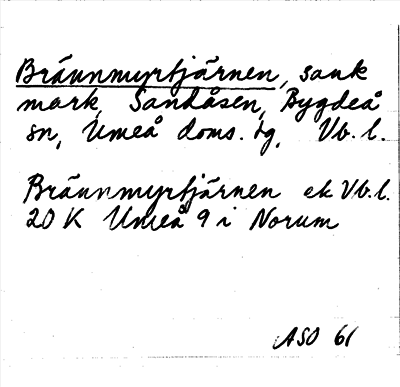 Bräunmyrtjärnen, sank
mark, Sandåsen, Bygdeå
sn, Umeå doms. tg, Vb. l.
Bräunmyrtjärnen ek Vb. l.
20 K Umeå 9 i Norum
ASO 61